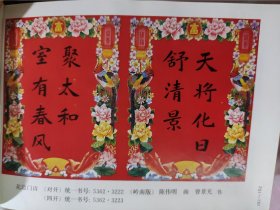 天将化日
舒清景
室有春风
聚太和
(对开) 统一书号: 5362·3222 (岭南版) 陈伟明 画 曾景充 书
(四开) 统一书号: 5362·3223